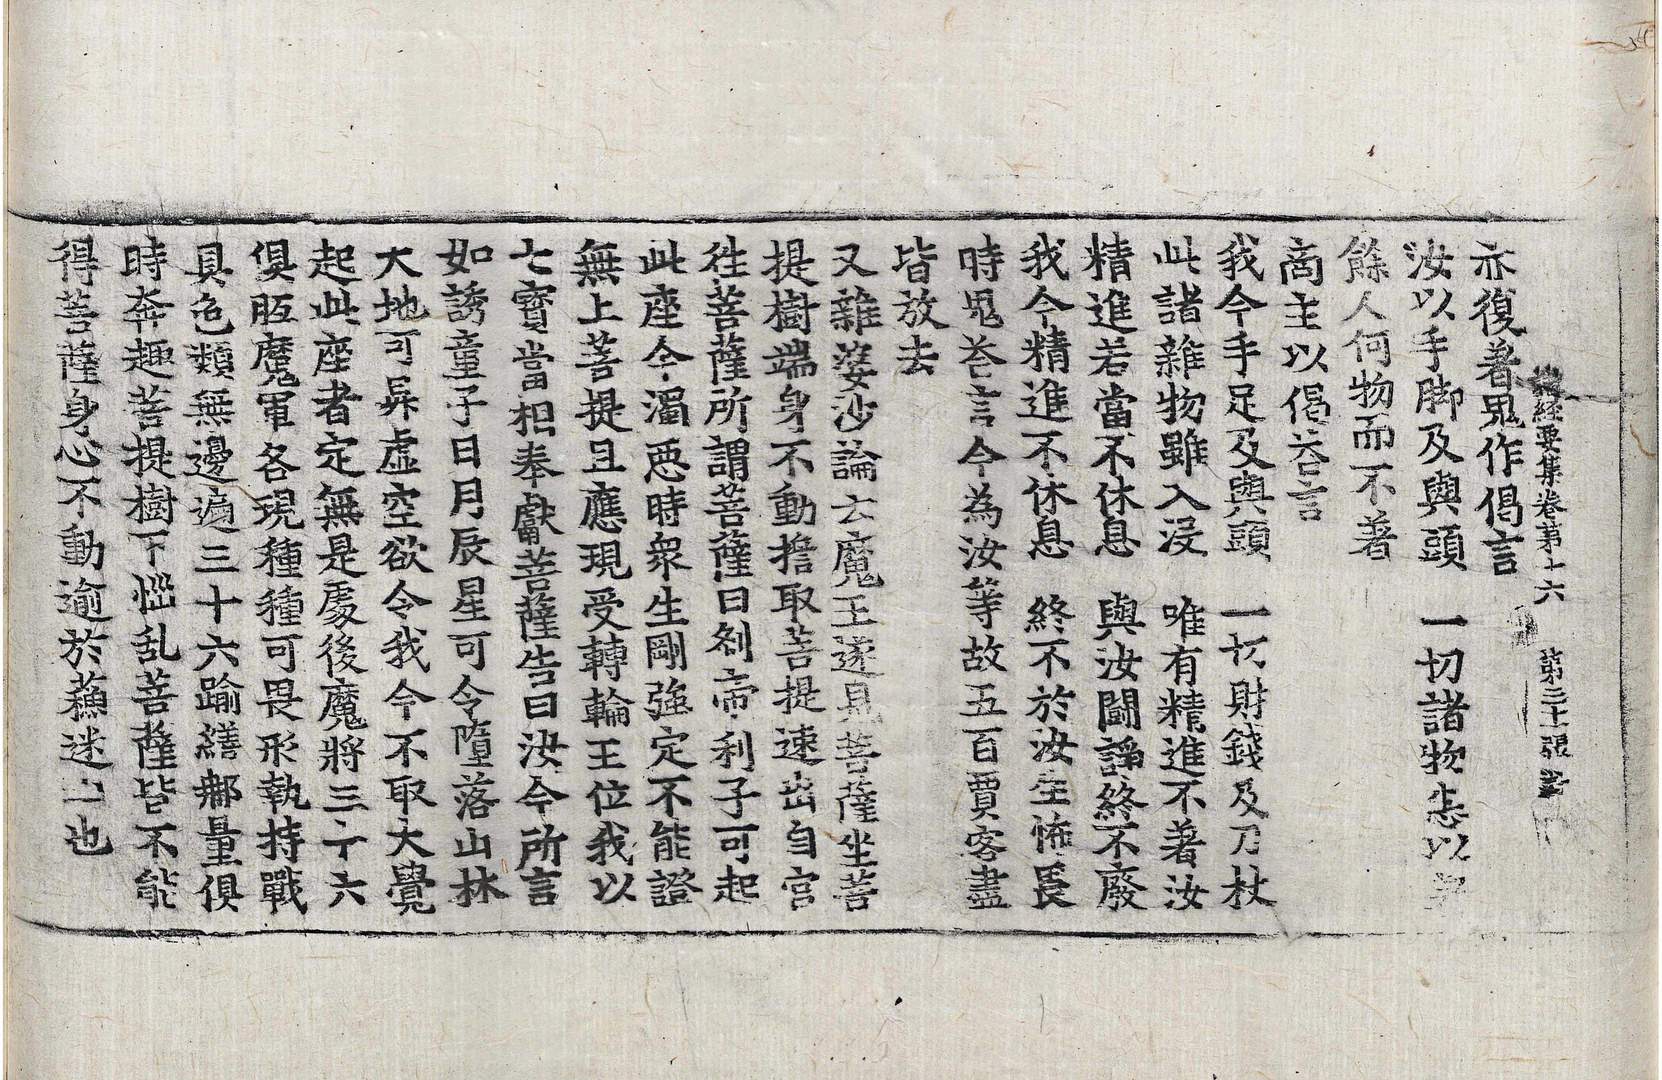 諸經要集卷第十六 第二十張
亦復著鬼作偈言
汝以手脚及與頭 一切諸物悉以
餘人何物而不著
商主以偈荅言
我今手足及與頭 一切財錢及刀杖
此諸雜物雖入沒 唯有精進不著汝
精進若當不休息 與汝鬪諍終不廢
我今精進不休息 終不於汝生怖畏
時鬼荅言今為汝等故五百賈客盡
皆放去
又雜婆沙論云魔王遂見菩薩坐菩
提樹端身不動擔取菩提速出自宮
徃菩薩所謂菩薩曰剎帝利子可起
此座今濁惡時衆生剛強定不能證
無上菩提且應現受轉輪王位我以
七寶當相奉獻菩薩告曰汝今所言
如誘童子日月辰星可令墮落山林
大地可昇虛空欲令我今不取大覺
起此座者定無是處後魔將三十六
俱胝魔軍各現種種可畏形執持戰
具色類無邊遍三十六踰繕那量俱
時奔趣菩提樹下惱乱菩薩皆不能
得菩薩身心不動逾於蘓迷盧也